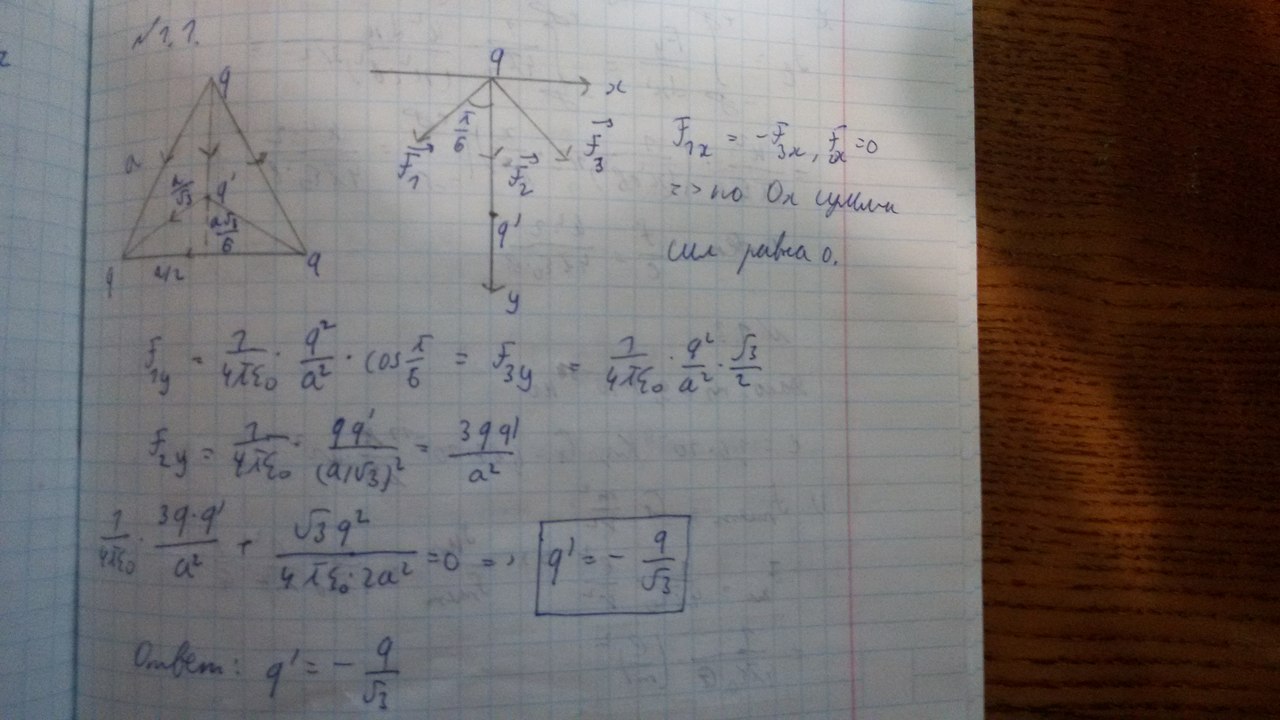 №1.1.
q
a
a/√3
q'
a√3/6
q
a/2
q
q
x
π/6
F₁
F₂
F₃
q'
y
F₁ₓ = -F₃ₓ, F₂ₓ = 0
=> по Ox сумма
сил равна 0.
F₁y = 1/4πε₀ · q²/a² · cos π/6 = F₃y = 1/4πε₀ · q²/a² · √3/2
F₂y = 1/4πε₀ · qq'/(a/√3)² = 3qq'/a²
1/4πε₀ · 3q·q'/a² + √3q²/4πε₀·2a² = 0 => q' = - q/√3
Ответ: q' = - q/√3